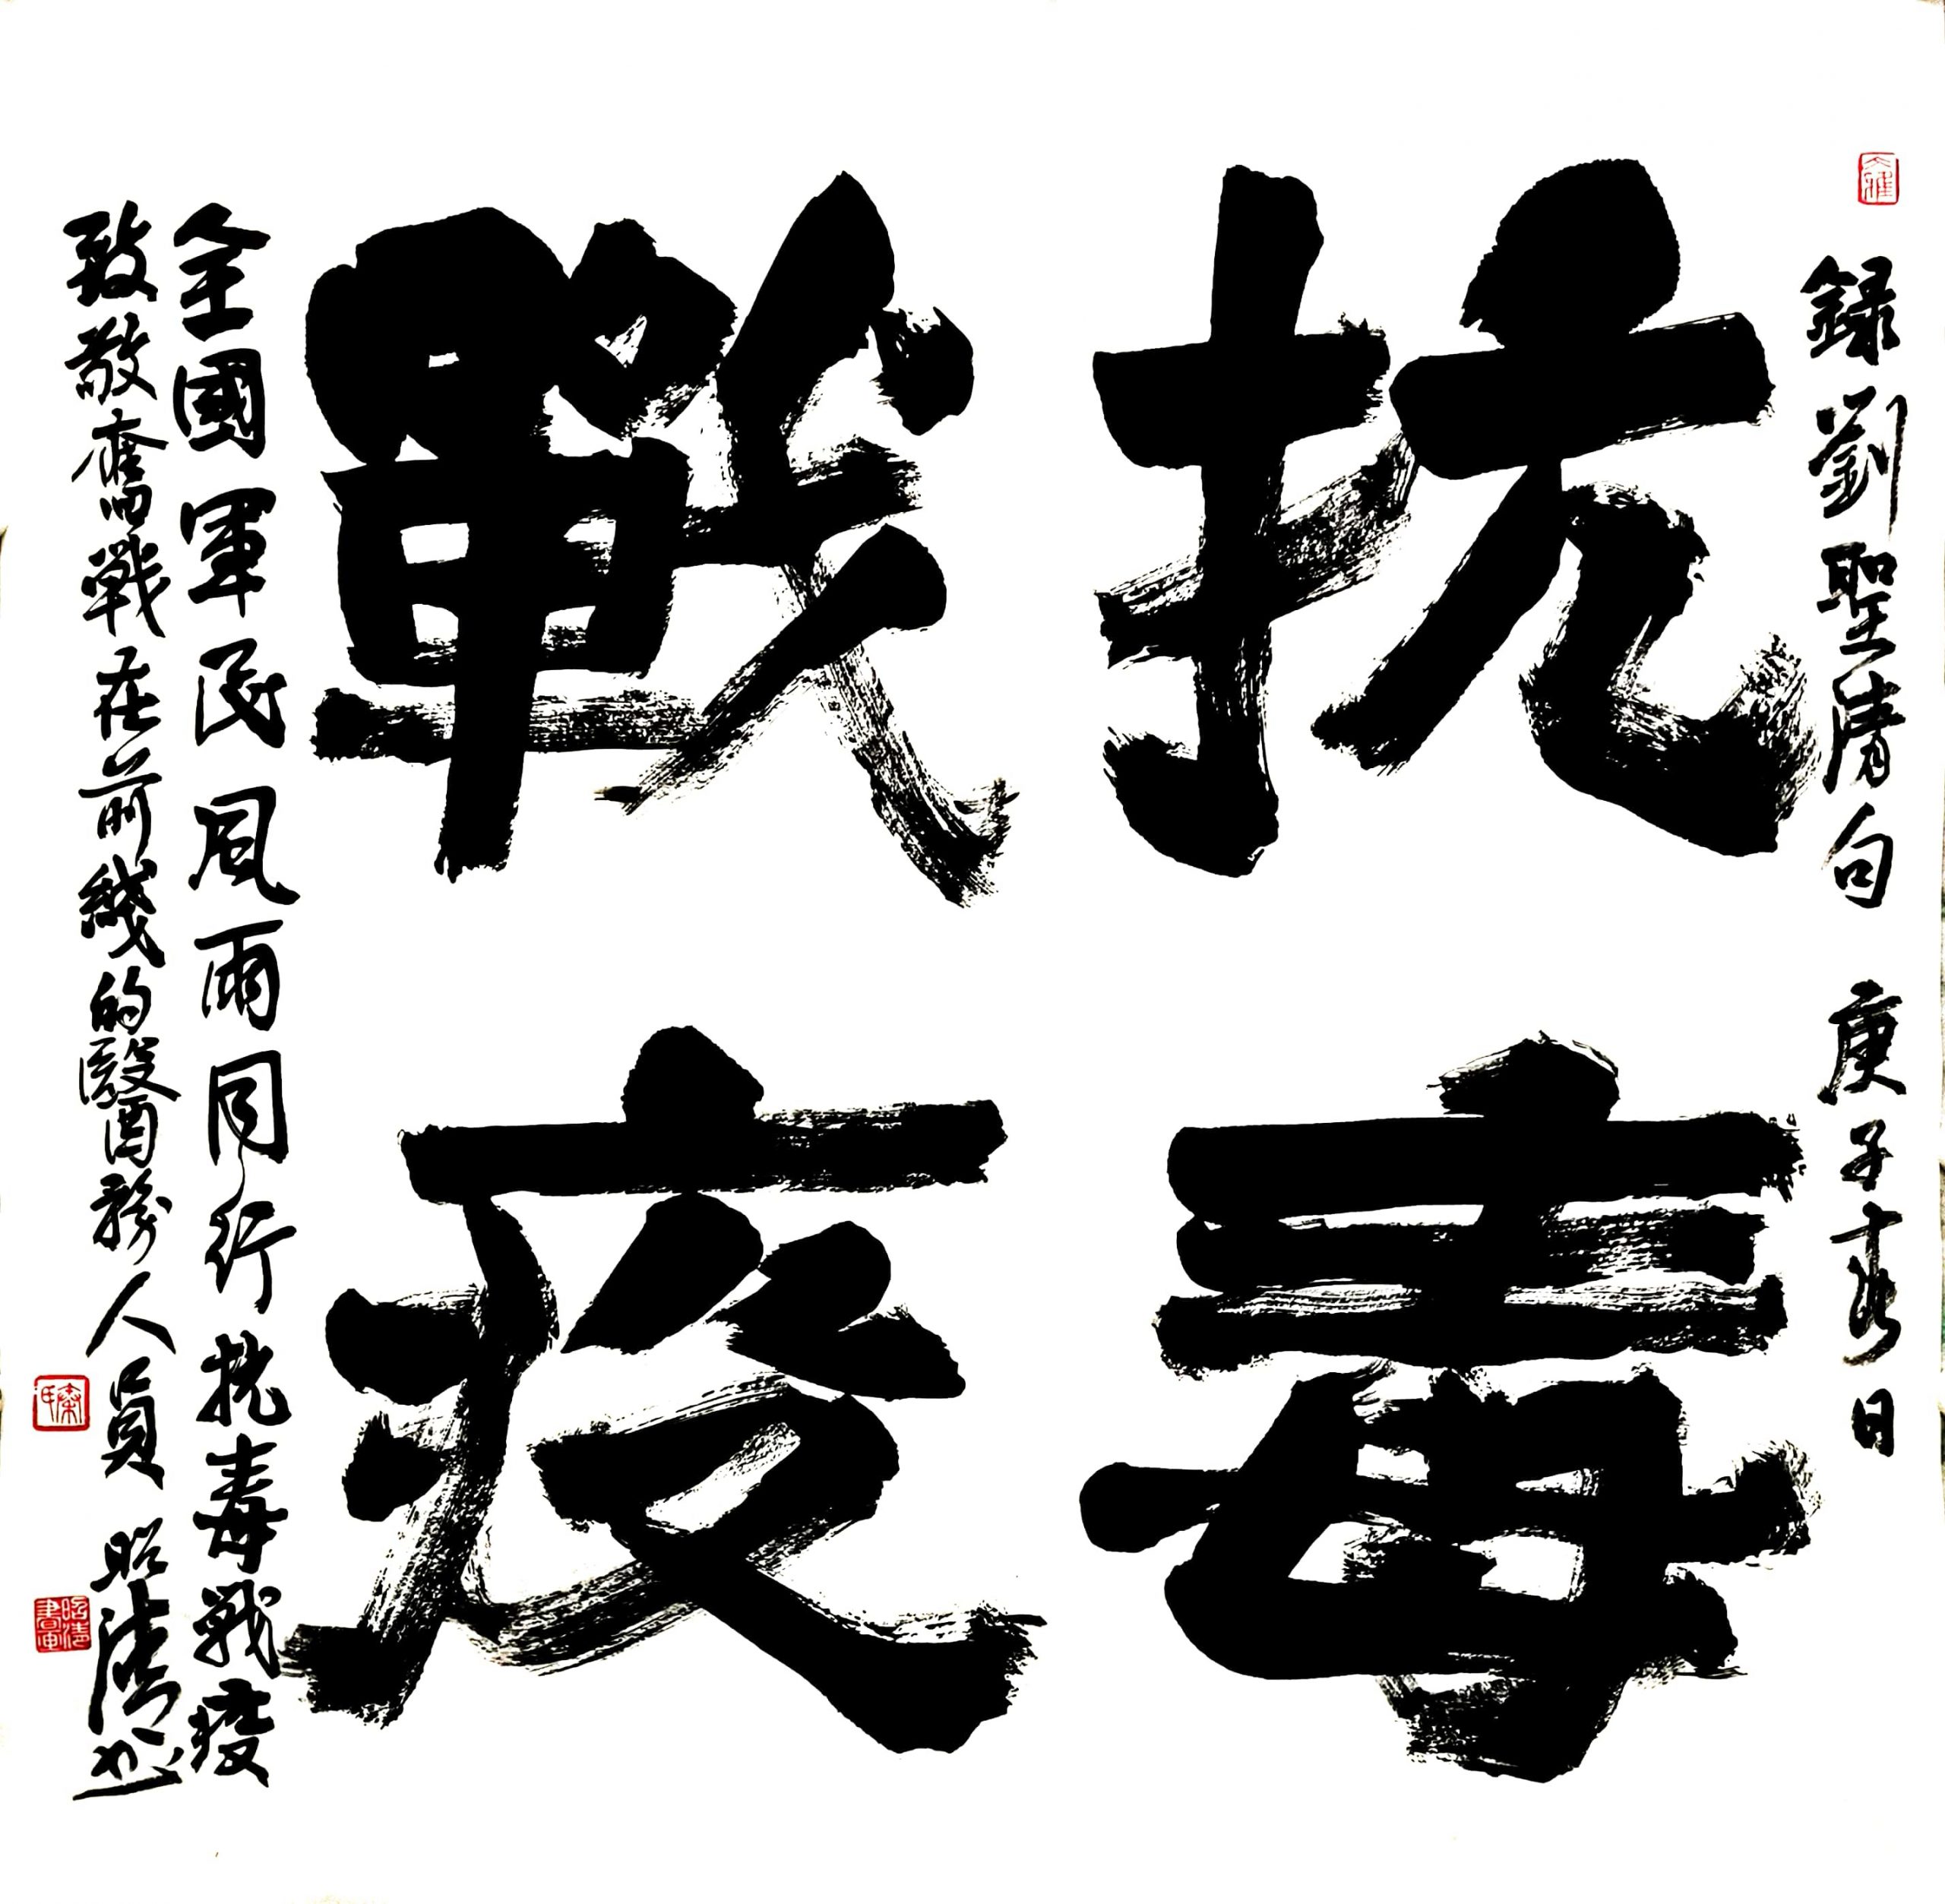 錄劉聖清句 庚子春日
抗毒
戰疫
全國軍民風雨同行抗毒戰疫
致敬奮戰在前綫的醫務人員 昭清書
秦氏
昭清書畫